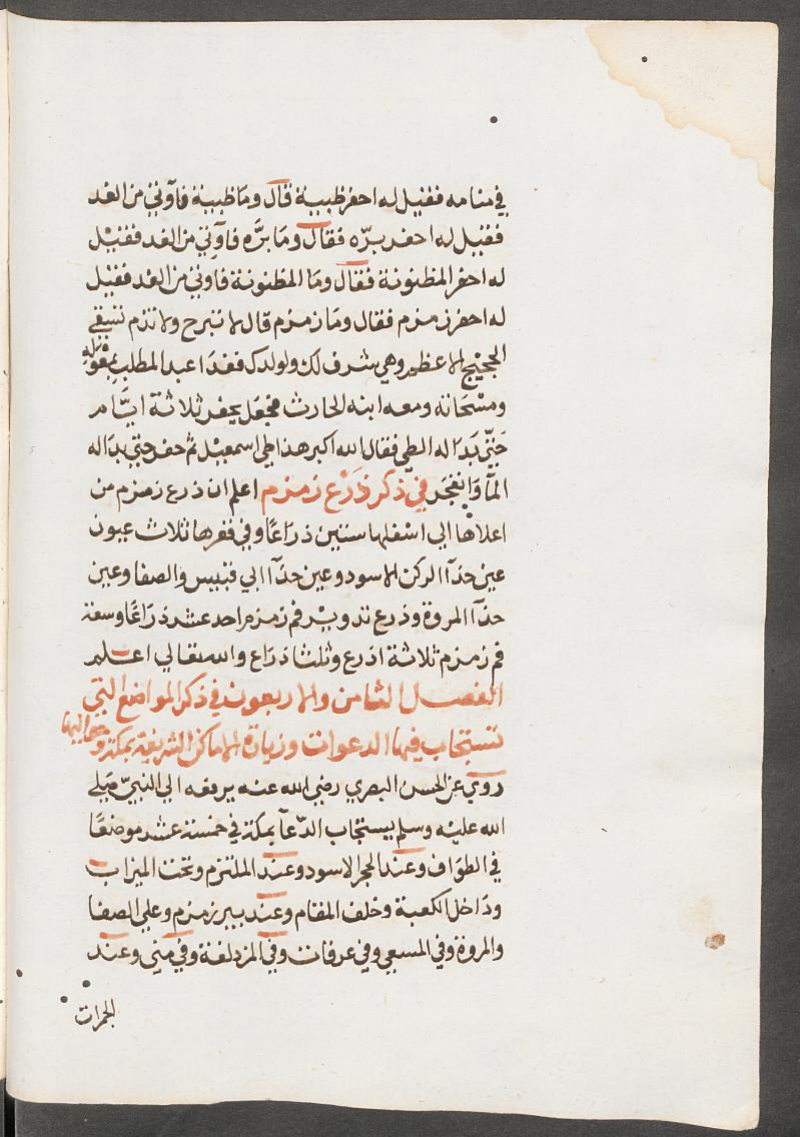 في منامه فقيل له احفر ظبية قال وما ظبية فاوتي من الغد
فقيل له احفر برّه فقال وما برَّه فاوتي من الغد فقيل
له احفر المظنونة فقال وما المظنونة فاوتي من الغد فقيل
له احفر زمزم فقال وما زمزم قال لا تبرح ولا تذم تسقي
الحجيج الاعظم وهي شرف لك ولولدك فغدا عبد المطلب بمعوله
ومسحاته ومعه ابنه الحارث فجعل يحفر ثلاثة ايَّام
حَتّي بَدَا له الطي فقال الله اكبر هذا طي اسمعيل ثم حفر حتي بدا له
المآ وَانفجَر في ذكر ذَرْع زمزم اعلم ان ذرع زمزم من
اعلاها الي اسفلها ستين ذرَاعًا وفي قعرها ثلاث عيون
عين حذآ الركن الاسود وعين حذآ ابي قبيس والصفا وعين
حذآ المروة وذرع تدوير فم زمزم احد عشر ذرَاعًا وسعة
فم زمزم ثلاثة اذرع وثلثا ذراع والله تعالي اعلم
الفصل الثامن والاربعون في ذكر المواضع التي
تستجاب فيها الدعوات وزيارة الاماكن الشريفة بمكة وحواليها
روي عن الحسن البصري رضي الله عنه يرفعه الي النبيّ صَلي
الله عليه وسلم يستجاب الدّعآ بمكة في خمسة عشر موضعًا
في الطوَاف وعند الحجر الاسود وعند الملتزم وتحت الميزاب
ودَاخل الكعبة وخلف المقام وعند بير زمزم وعلي الصفا
والمروة وفي المسعي وفي عرفات وفي المزدلفة وفي مني وعند
الجمرات